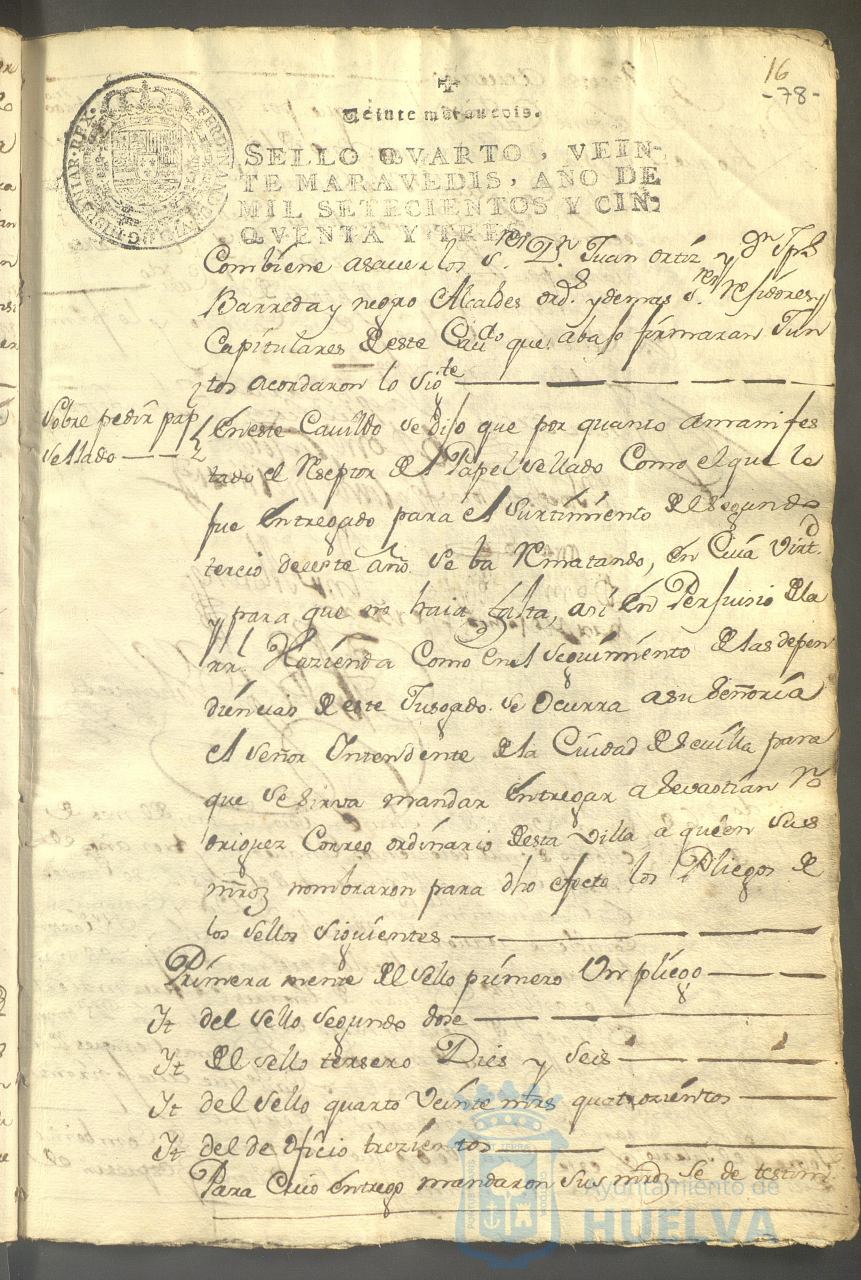 16
-78-
FERDINANDUS VI D.G. HISPANIAR. REX.
Veinte maravedis.
SELLO QVARTO, VEIN-
TE MARAVEDIS, AÑO DE
MIL SETECIENTOS Y CIN-
QVENTA Y TRES.
Combiene asauer los s.res D.n Juan ortiz y d.n Jph
Barreda y negro Alcaldes ord.s y demas s.res Residores y
Capitulares de este Cau.do que abajo firmaran Jun
tos acordaron lo sig.te
Sobre pedir pap.l
sellado
En este Cauildo se dijo que por quanto a manifes
tado el Reseptor del Papel sellado Como el que le
fue entregado para el surtimiento del segundo
tercio de este año se ba Rematando, en Cuia virt.d
y para que no haia falta, asi en Perjuisio de la
rr.l Hazienda Como en el seguimiento de las depen
diencias de este Jusgado se Ocurra a su señoria
el señor Intendente de la Ciudad de Seuilla para
que se sirva mandar entregar a Sevastian Ro
driguez Correo ordinario de esta villa a quien sus
mrdz nombraron para dho efecto los Pliegos de
los sellos siguientes
Primera mente del sello primero Un pliego
It del sello segundo dose
It del sello tersero Dies y seis
It del sello quarto Veinte mrs quatrozientos
It del de oficio trezientos
Para Cuio entrego mandaron sus mrdz se de testim
Ayuntamiento de
HUELVA